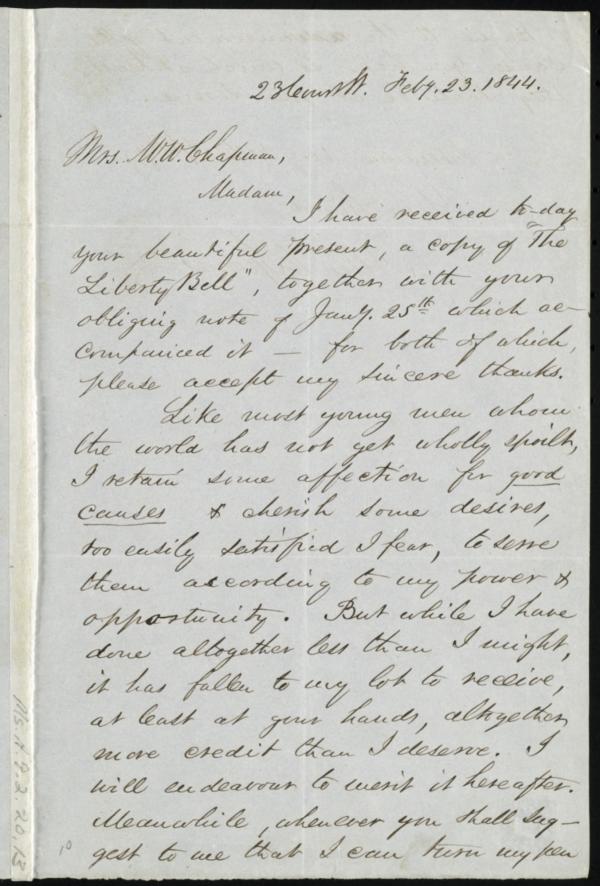 23 Court St. Feby. 23. 1844.
Mrs. W. W. Chapman,
Madam,
I have received to-day
your beautiful present, a copy of "The
Liberty Bell", together with your
obliging note of Jany. 25th which ac-
companied it — for both of which,
please accept my sincere thanks.
Like most young men whom
the world has not yet wholly spoilt,
I retain some affection for good
causes & cherish some desires,
too easily satisfied I fear, to serve
them according to my power &
opportunity. But while I have
done altogether less than I might,
it has fallen to my lot to receive,
at least at your hands, altogether
more credit than I deserve. I
will endeavour to merit it hereafter.
Meanwhile, whenever you shall sug-
gest to me that I can turn my pen
Ms.A.9.2.20.13